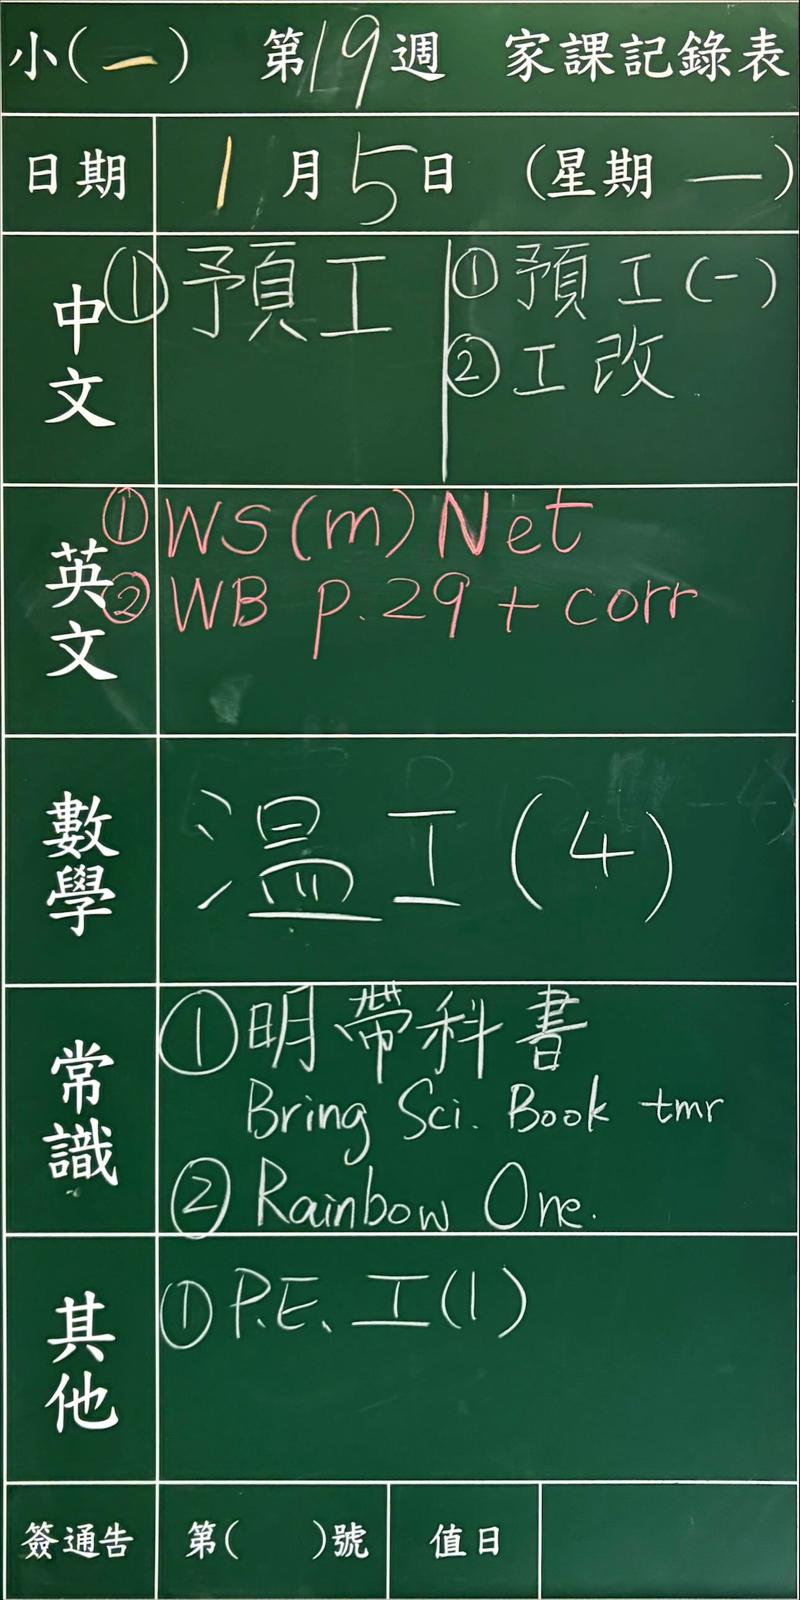 小(一) 第19週 家課記錄表
日期 1月5日 (星期一)
中文
①預工
①預工(一)
②工改
英文
①WS(m) Net
②WB p.29 + corr
數學
溫工(4)
常識
①明帶科書
Bring Sci. Book tmr
②Rainbow One.
其他
①P.E.工(1)
簽通告 第( )號 值日